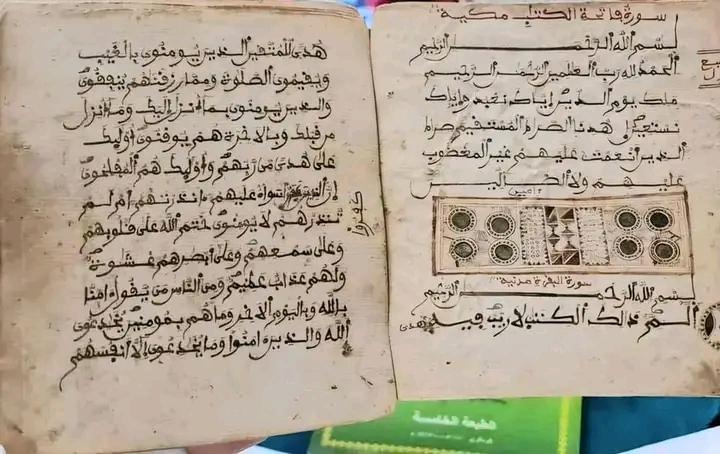 سورة فاتحة الكتاب مكية
بسم الله الرحمن الرحيم
الحمد لله رب العلمين الرحمن الرحيم
ملك يوم الدين إياك نعبد وإياك
نستعين إهدنا الصراط المستقيم صراط
الذين أنعمت عليهم غير المغضوب
عليهم ولا الضالين
ءامين
سورة البقرة مدنية
بسم الله الرحمن الرحيم
الم ذلك الكتب لا ريب فيه
هدى
هدى للمتقين الذين يومنون بالغيب
ويقيمون الصلوة ومما رزقنهم ينفقون
والذين يومنون بما أنزل إليك وما أنزل
من قبلك وبالاخرة هم يوقنون أوليك
على هدى من ربهم وأوليك هم المفلحون
إن الذين سواء عليهم ءانذرتهم أم لم
كفروا
تنذرهم لا يومنون ختم الله على قلوبهم
وعلى سمعهم وعلى أبصرهم غشوة
ولهم عذاب عظيم ومن الناس من يقول ءامنا
بالله وباليوم الاخر وما هم بمومنين يخدعون
الله والذين ءامنوا وما يخدعون إلا أنفسهم
الطبعة الخامسة